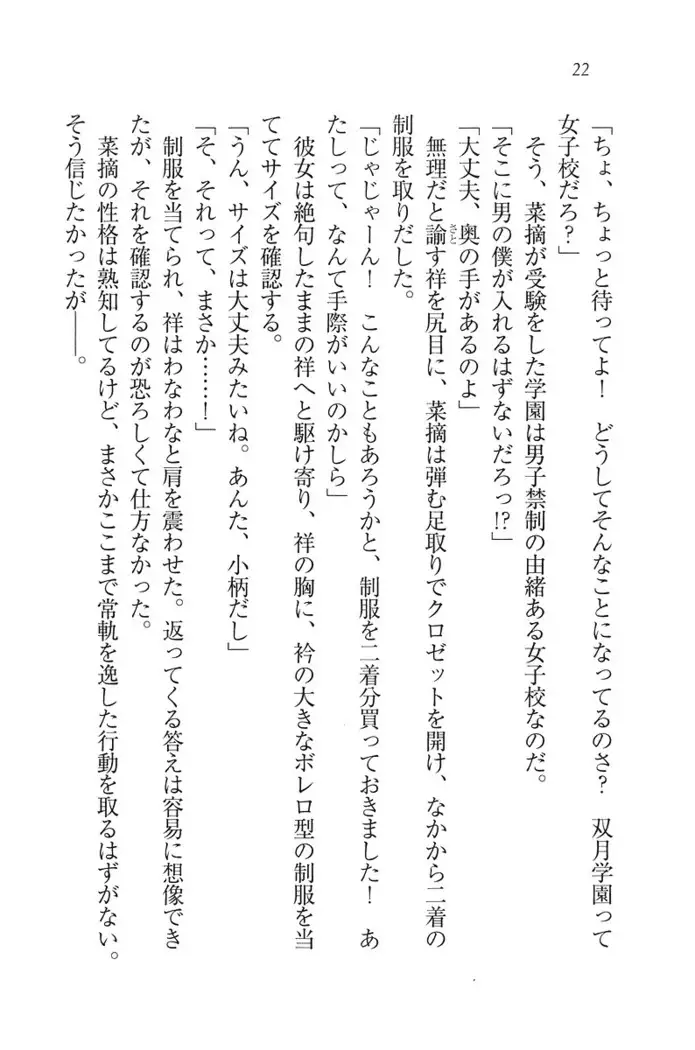 22
「ちょ、ちょっと待ってよ！　どうしてそんなことになってるのさ？　双月学園って
女子校だろ？」
そう、菜摘が受験をした学園は男子禁制の由緒ある女子校なのだ。
「そこに男の僕が入れるはずないだろっ!?」
「大丈夫、奥の手があるのよ」
無理だと諭す祥を尻目に、菜摘は弾む足取りでクロゼットを開け、なかから二着の
さと
制服を取りだした。
「じゃじゃーん！　こんなこともあろうかと、制服を二着分買っておきました！　あ
たしって、なんて手際がいいのかしら」
彼女は絶句したままの祥へと駆け寄り、祥の胸に、衿の大きなボレロ型の制服を当
ててサイズを確認する。
「うん、サイズは大丈夫みたいね。あんた、小柄だし」
「そ、それって、まさか……！」
制服を当てられ、祥はわなわなと肩を震わせた。返ってくる答えは容易に想像でき
たが、それを確認するのが恐ろしくて仕方なかった。
菜摘の性格は熟知してるけど、まさかここまで常軌を逸した行動を取るはずがない。
そう信じたかったが――。